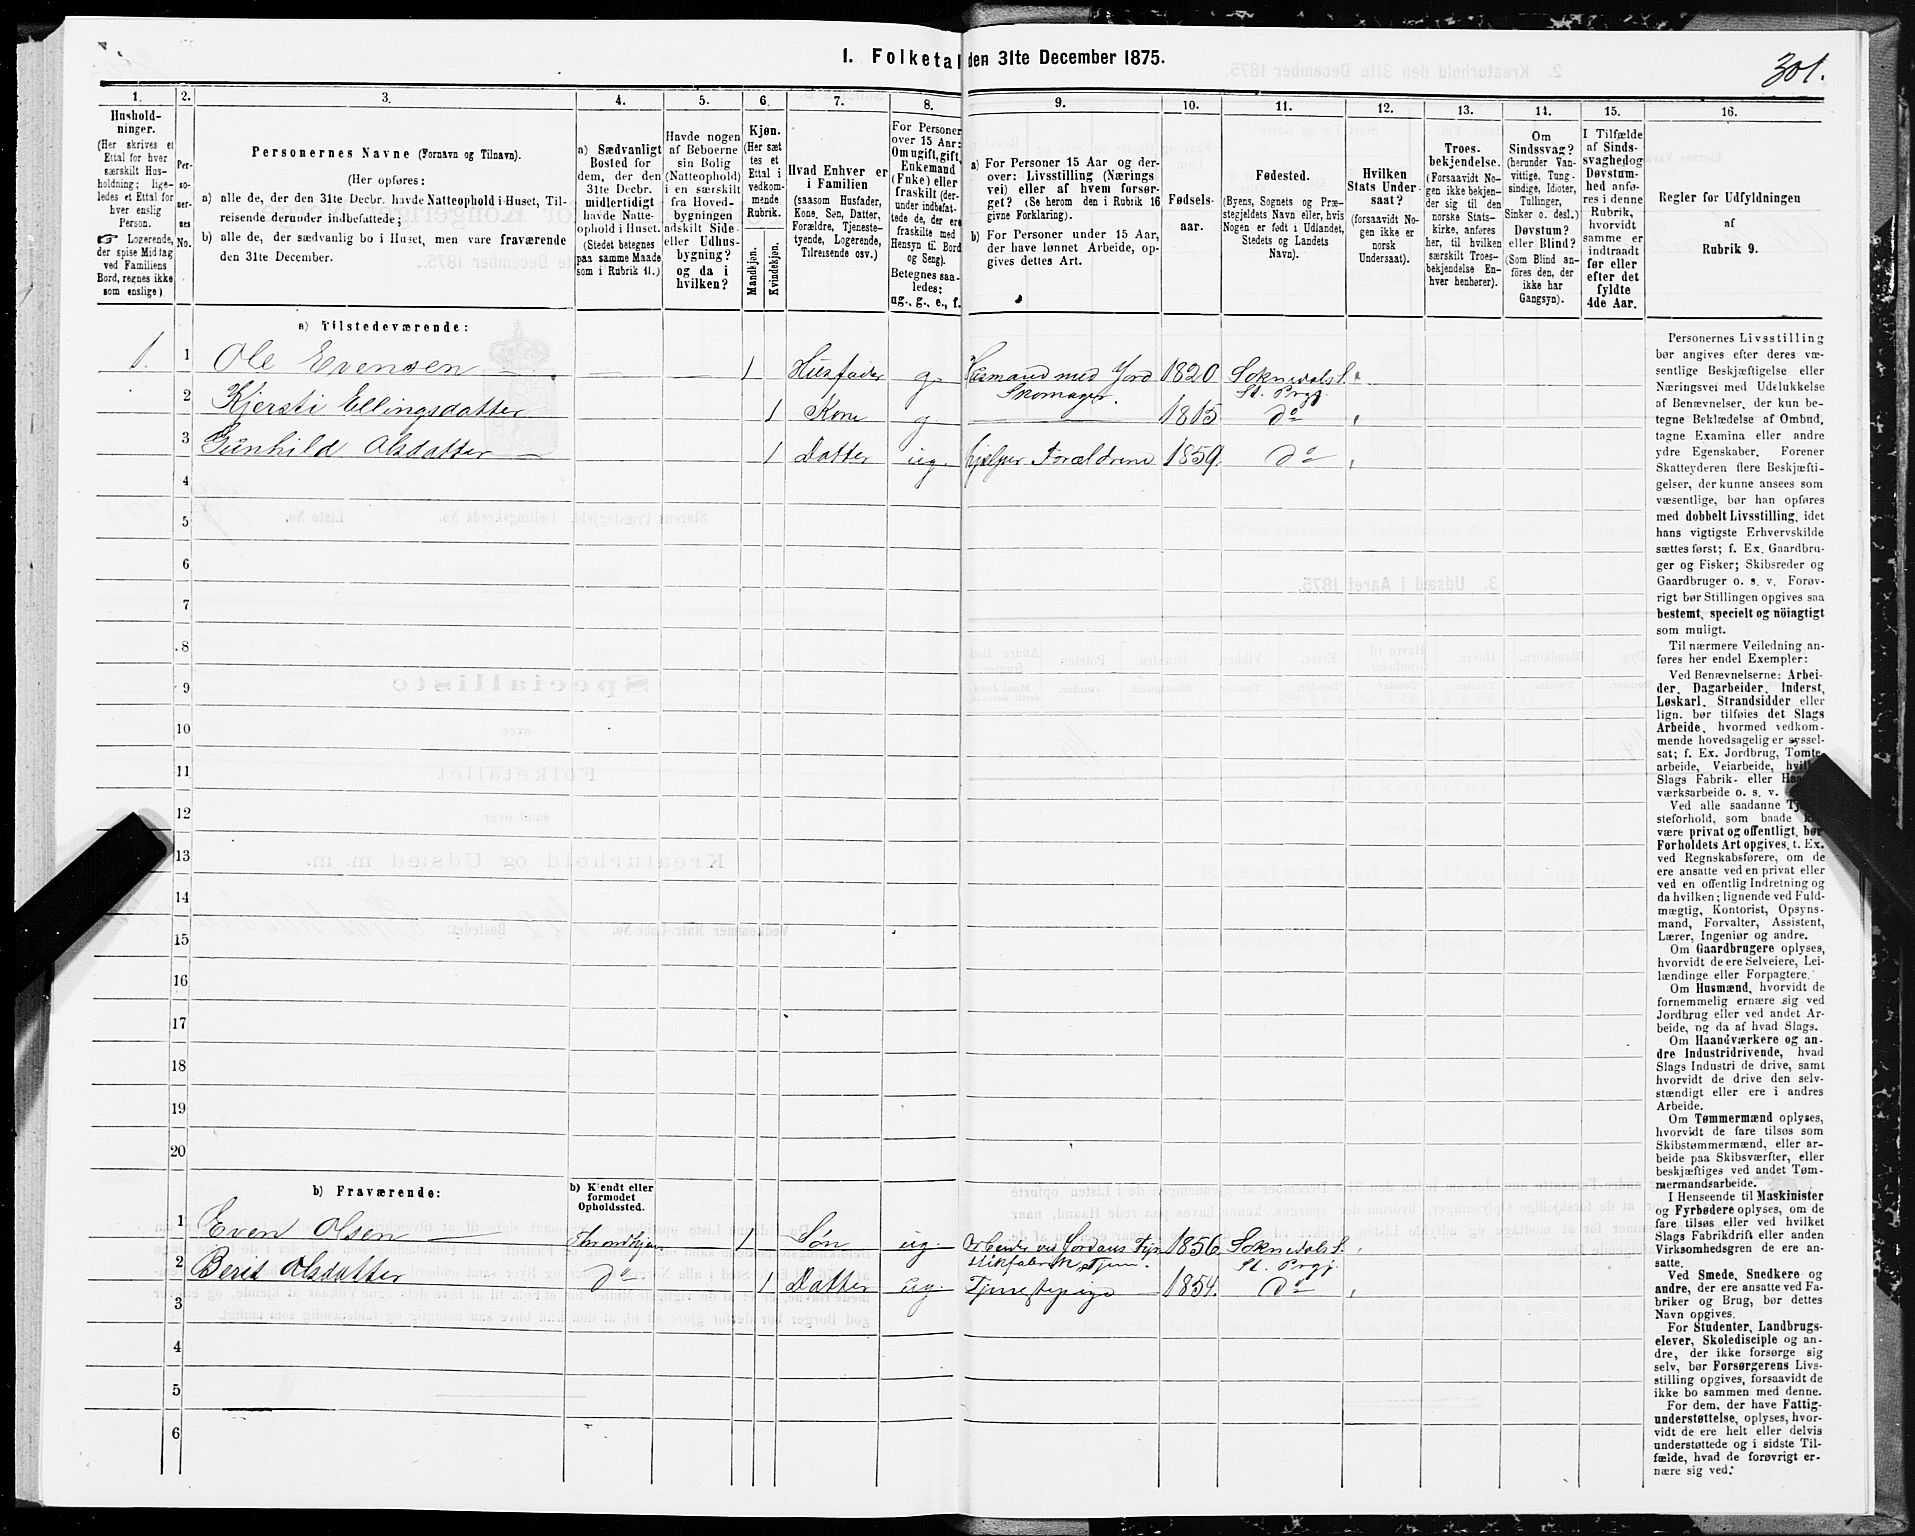 1. Folketal den 31te December 1875.
301.
1. 2. 3. 4. 5. 6. 7. 8. 9. 10. 11. 12. 13. 14. 15. 16.
Hushold-
ninger.
(Her skrives et
Ettal for hver
særskilt Hus-
holdning; lige-
ledes et Ettal for
hver enslig
Person.
☞ Logerende,
der spise Middag
ved Familiens
Bord, regnes ikke
som enslige)
Per-
so-
ner-
nes
No.
Personernes Navne (Fornavn og Tilnavn).
(Her opføres:
a) alle de, der den 31te Decbr. havde Natteophold i Huset, Til-
reisende derunder indbefattede;
b) alle de, der sædvanlig bo i Huset, men vare fraværende
den 31te December.
a) Sædvanligt
Bosted for
dem, der den
31te Decbr.
midlertidigt
havde Natte-
ophold i Huset.
(Stedet betegnes
paa samme Maade
som i Rubrik 11.)
Havde nogen
af Beboerne
sin Bolig
(Natteophold)
i en særskilt
fra Hoved-
bygningen
adskilt Side-
eller Udhus-
bygning?
og da i
hvilken?
Kjøn.
(Her sæt
tes et
Ettal i
vedkom-
mende
Rubrik.
Mandkjøn.
Kvindekjøn.
Hvad Enhver er
i Familien
(saasom Husfader,
Kone, Søn, Datter,
Forældre, Tjeneste-
tyende, Logerende,
Tilreisende osv.)
For Personer
over 15 Aar:
Om ugift, gift,
Enkemand
(Enke) eller
fraskilt (der-
under indbefat-
tede de, der ere
fraskilte med
Hensyn til Bord
og Seng).
Betegnes saa-
ledes:
ug., g., e., f.
a) For Personer 15 Aar og der-
over: Livsstilling (Nærings
vei) eller af hvem forsør-
get? (Se herom den i Rubrik 16
givne Forklaring).
b) For Personer under 15 Aar,
der have lønnet Arbeide, op-
gives dettes Art.
Fødsels-
aar.
Fødested.
(Byens, Sognets og Præ-
stegjeldets Navn eller, hvis
Nogen er født i Udlandet,
Stedets og Landets
Navn).
Hvilken
Stats Under-
saat?
(forsaavidt No-
gen ikke er
norsk
Undersaat).
Troes-
bekjendelse.
(Forsaavidt No-
gen ikke bekjen-
der sig til den
norske Stats-
kirke, anføres
her, til hvilken
særskilt Troes-
bekjendelse En-
hver henhører).
Om
Sindssvag?
(herunder Van-
vittige, Tung-
sindige, Idioter,
Tullinger,
Sinker o. desl.)
Døvstum?
eller Blind?
(Som Blind an-
føres den, der
ikke har
Gangsyn).
I Tilfælde
af Sinds-
svaghed og
Døvstum-
hed anfø-
res i denne
Rubrik,
hvorvidt
samme er
indtraadt
før eller
efter det
fyldte
4de Aar.
Regler for Udfyldningen
af
Rubrik 9.
a) Tilstedeværende:
1. 1 Ole Evensen — — — 1 Husfader g. Husmand med Jord 1820 Soknedals S.
Skomager. St. Prgj.
2 Kjersti Ellingsdatter 1 Kone g — 1815 do
3 Gunhild Olsdatter — 1 Datter ug. hjelper Forældrene 1859. do
4
5
6
7
8
9
10
11
12
13
14
15
16
17
18
19
20
b) Fraværende:
b) Kjendt eller
formodet
Opholdssted.
1 Even Olsen — Throndhjem 1 Søn ug. Arbeider ved Jordans Fyr 1856. Soknedals S.
stikfabrik, Tjen. St. Prgj.
2 Berit Olsdatter do 1 Datter ug. Tjenestepige 1854. do
3
4
5
6
Personernes Livsstilling
bør angives efter deres væ-
sentlige Beskjæftigelse eller
Næringsvei med Udelukkelse
af Benævnelser, der kun be-
tegne Beklædelse af Ombud,
tagne Examina eller andre
ydre Egenskaber. Forener
Skatteyderen flere Beskjæfti-
gelser, der kunne ansees som
væsentlige, bør han opføres
med dobbelt Livsstilling, idet
hans vigtigste Erhvervskilde
sættes først; f. Ex. Gaardbru-
ger og Fisker; Skibsreder og
Gaardbruger o. s. v. Forøv-
rigt bør Stillingen opgives saa
bestemt, specielt og nöiagtigt
som muligt.
Til nærmere Veiledning an-
føres her endel Exempler:
Ved Benævnelserne: Arbei-
der, Dagarbeider, Inderst,
Løskarl, Strandsidder eller
lign. bør tilføies det Slags
Arbeide, hvormed vedkom-
mende hovedsagelig er syssel-
sat; f. Ex. Jordbrug, Tomte-
arbeide, Veiarbeide,
Slags Fabrik- eller
værksarbeide o. s. v.
Ved alle saadanne
steforhold, som baade
være privat og offentligt, bør
Forholdets Art opgives, t. Ex.
ved Regnskabsførere, om de
ere ansatte ved en privat eller
ved en offentlig Indretning og
da hvilken; lignende ved Fuld-
mægtig, Kontorist, Opsyns-
mand, Forvalter, Assistent,
Lærer, Ingeniør og andre.
Om Gaardbrugere oplyses,
hvorvidt de ere Selveiere, Lei-
lændinge eller Forpagtere.
Om Husmænd, hvorvidt de
fornemmelig ernære sig ved
Jordbrug eller ved andet Ar-
beide, og da af hvad Slags.
Om Haandværkere og an-
dre Industridrivende, hvad
Slags Industri de drive, samt
hvorvidt de drive den selv-
stændigt eller ere i andres
Arbeide.
Om Tømmermænd oplyses,
hvorvidt de fare tilsøs som
Skibstømmermænd, eller ar-
beide paa Skibsværfter, eller
beskjæftiges ved andet Tøm-
mermandsarbeide.
I Henseende til Maskinister
og Fyrbødere oplyses, om de
fare tilsøs eller ved hvilket
Slags Fabrikdrift eller anden
Virksomhedsgren de ere an-
satte.
Ved Smede, Snedkere og
andre, der ere ansatte ved Fa-
briker og Brug, bør dettes
Navn opgives.
For Studenter, Landbrugs-
elever, Skoledisciple og an-
dre, der ikke forsørge sig
selv, bør Forsørgerens Livs-
stilling opgives, forsaavidt de
ikke bo sammen med denne.
For dem, der have Fattig-
understøttelse, oplyses, hvor-
vidt de ere helt eller delvis
understøttede og i sidste Til-
fælde, hvad de forøvrigt er-
nære sig ved.